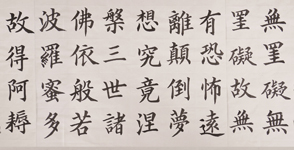 無罣礙無
罣礙故無
有恐怖遠
離顛倒夢
想究竟涅
槃三世諸
佛依般若
波羅蜜多
故得阿耨